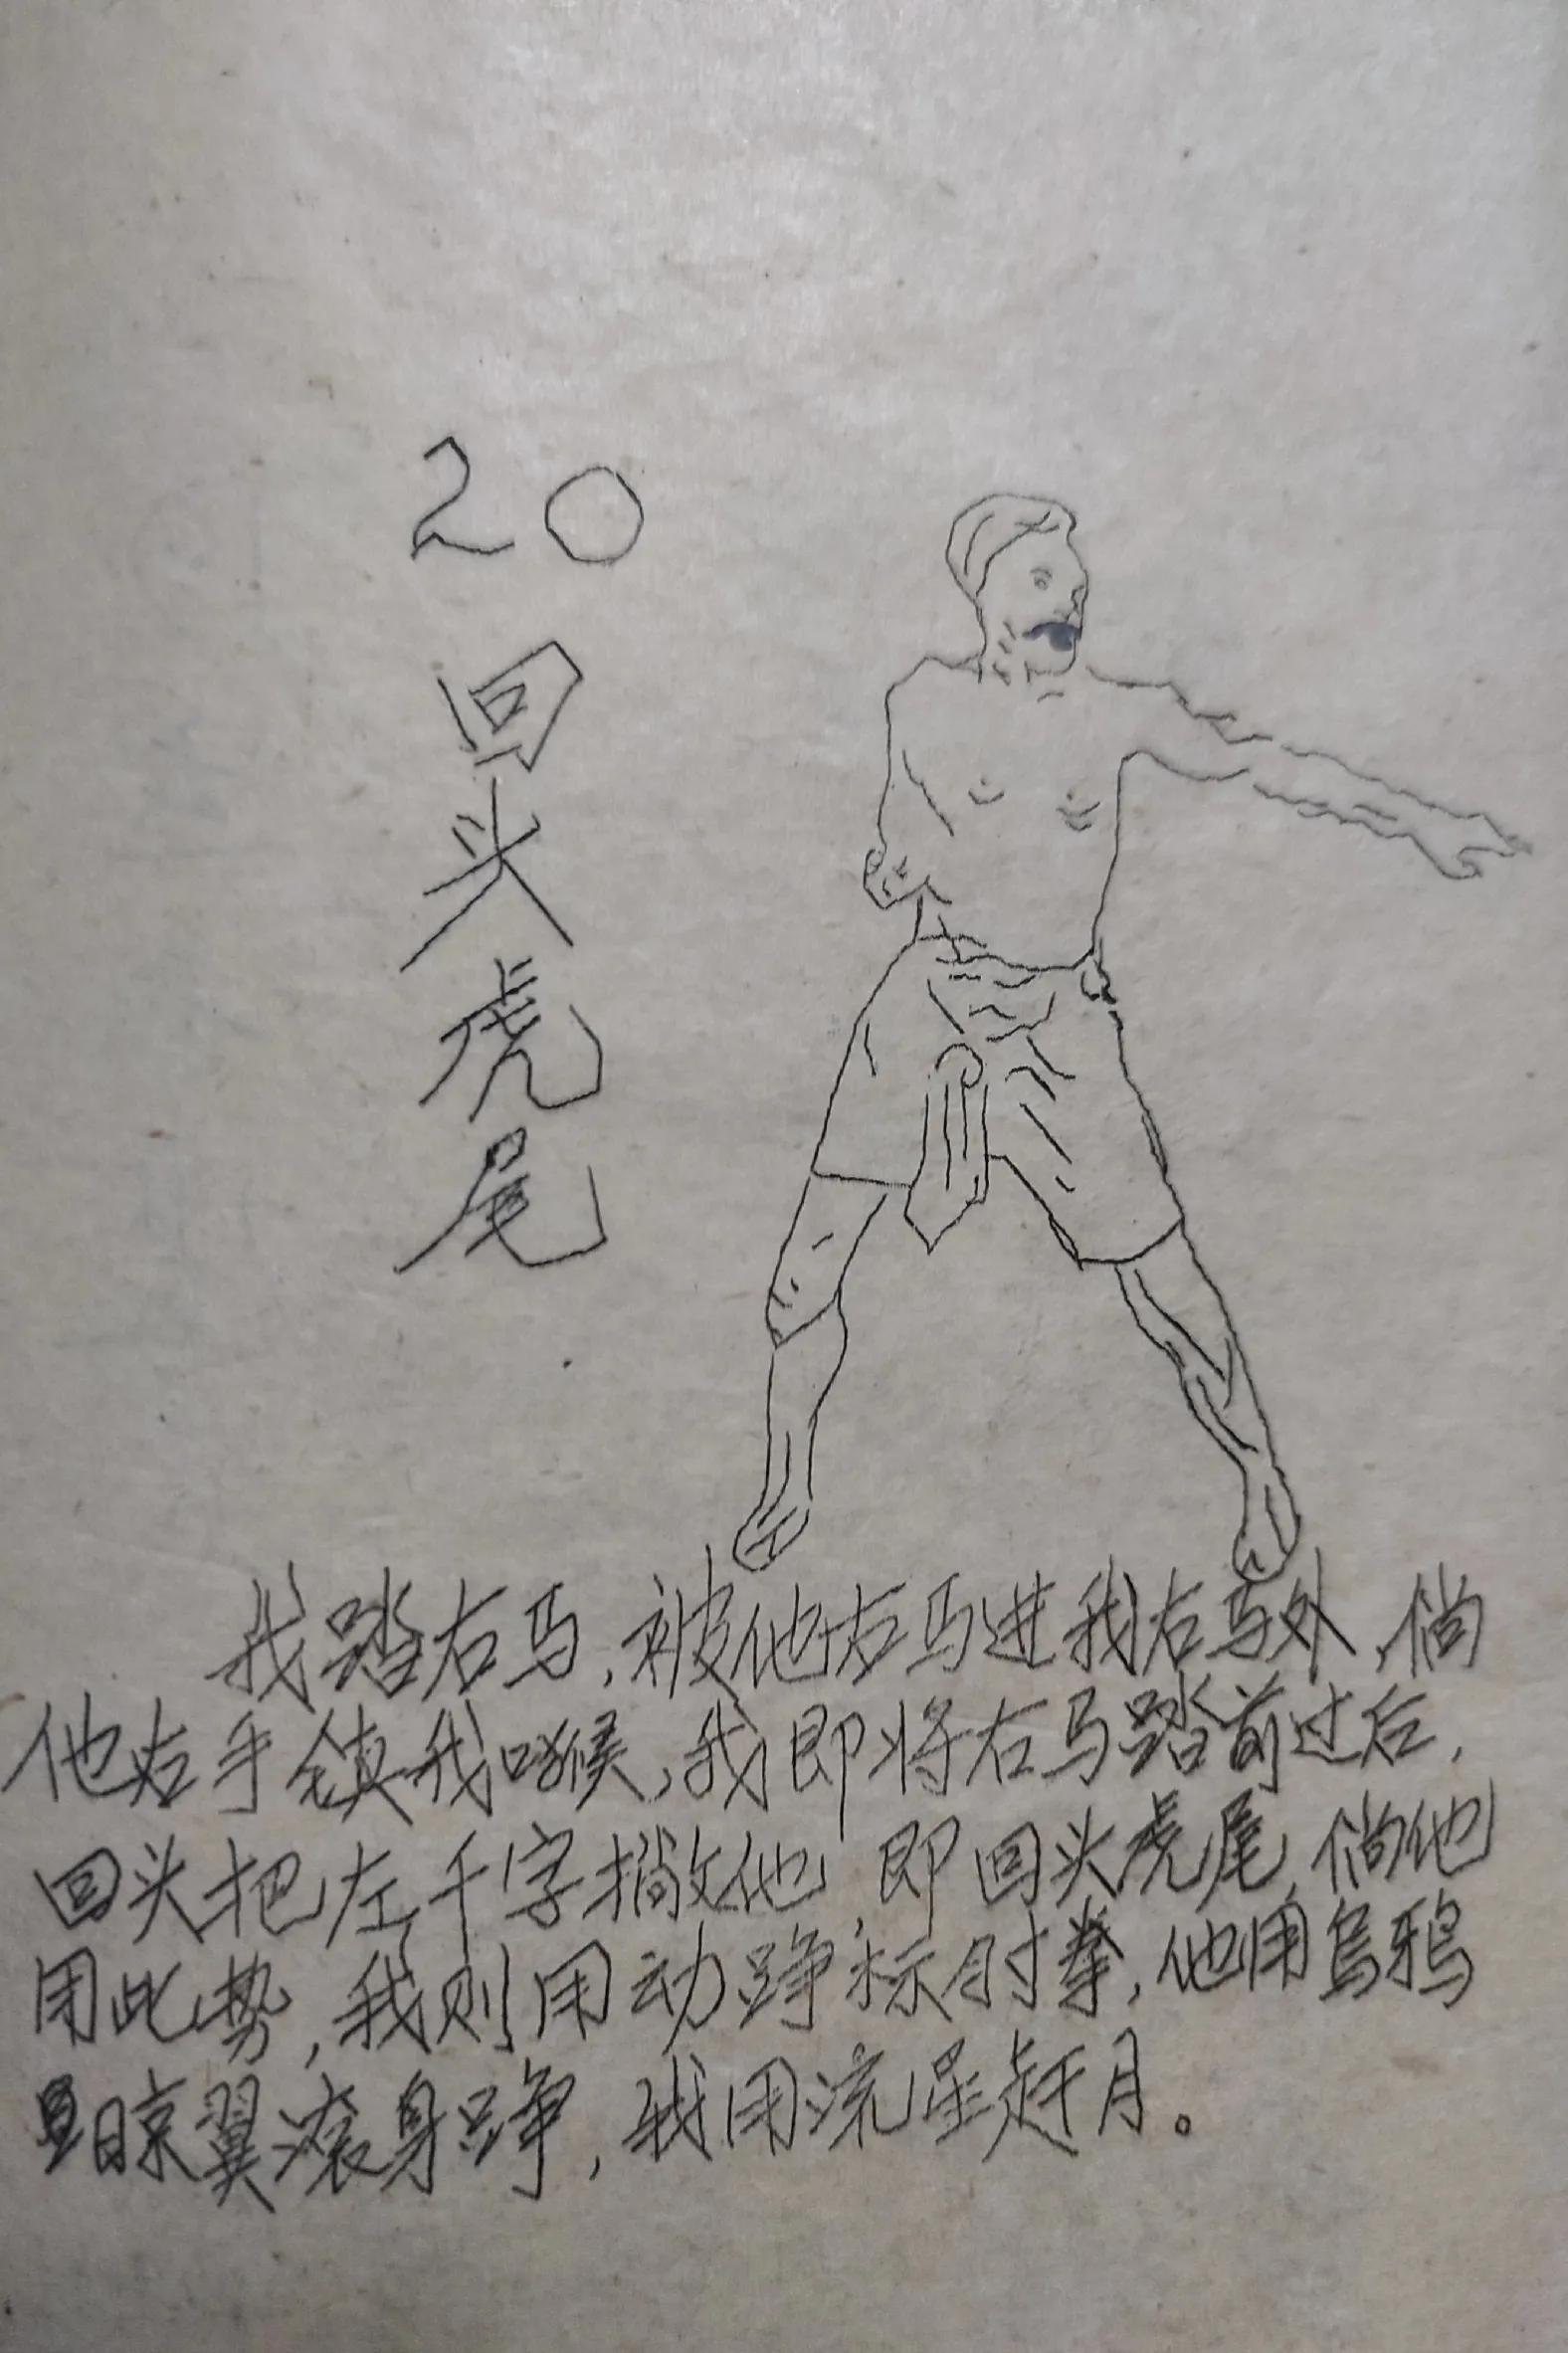 20
回头虎尾
我踏右马,被他右马进我右马外,倘
他右手镇我喉,我即将右马踏前过后,
回头把左千字撇他,即回头虎尾,倘他
用此势,我则用动踭标肘拳,他用乌鸦
晾翼滚身踭,我用流星赶月。